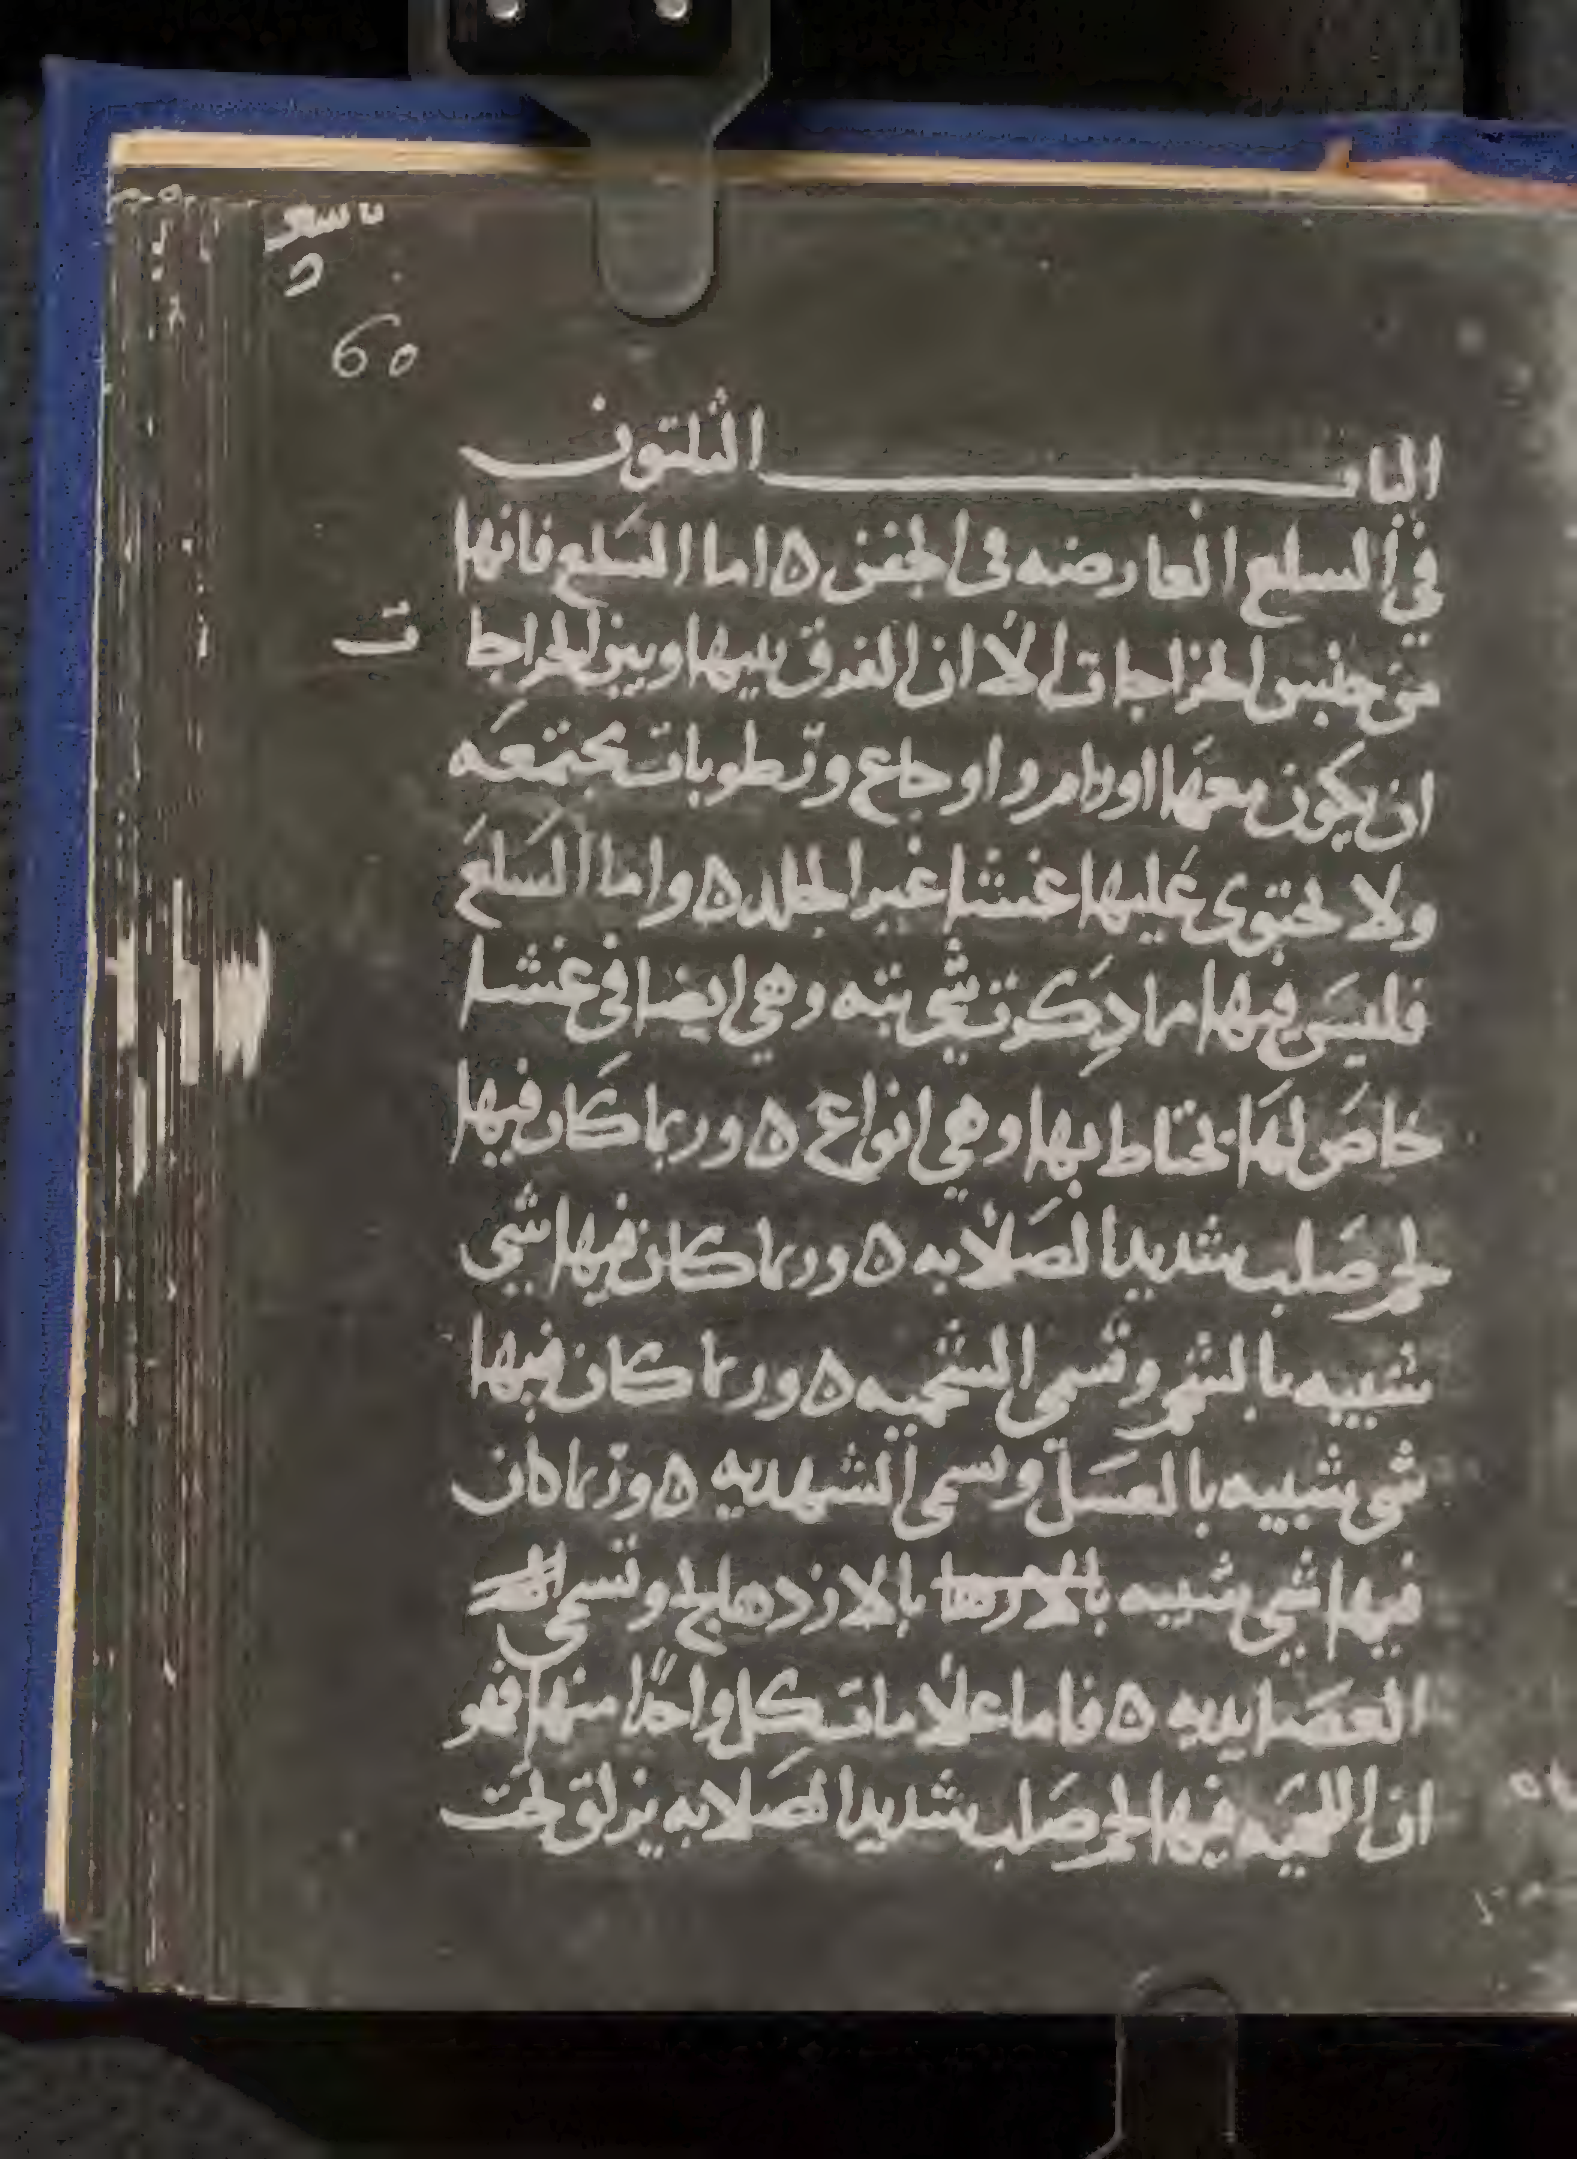 60
الباب الثلثون
في السلع العارضه في الجفن ه اما السلع فانها
من جنس الخراجات الا ان الفرق بينها وبين الخراجا
ت
ان يكون معها اورام واوجاع ورطوبات مجتمعه
ولا تحتوى عليها غشا غير الجلد ه واما السلع
فليس فيها مما دكرت شي بته وهي ايضا في غشا
خاص لها تحتاط بها وهي انواع ه وربما كان فيها
لحم صلب شديد الصلابه ه وربما كان فيها شي
شبيه بالشحم وتسمى الشحميه ه وربما كان فيها
شي شبيه بالعسل وتسمى الشهديه ه وربما كان
فيها شي شبيه بالاردها بالازدهالج وتسمى
العصايديه ه فاما علامات كل واحدا منها فهو
ان اللحميه فيها لحم صلب شديد الصلابه يزلق تحت